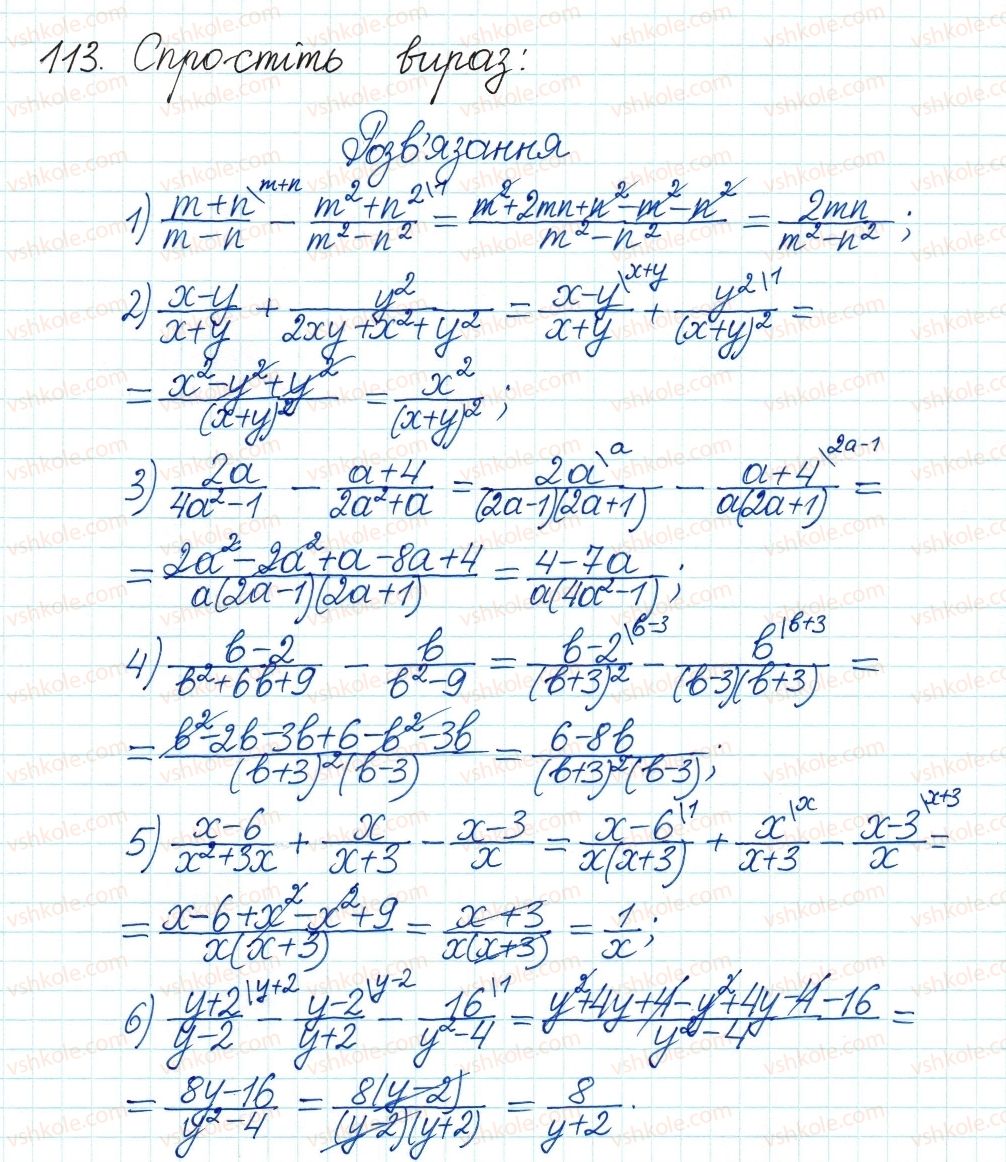 113. Спростіть вираз:
Розв'язання
1) \frac{m+n}{m-n}^{\m+n} - \frac{m²+n²}{m²-n²}^{\1} = \frac{m²+2mn+n²-m²-n²}{m²-n²} = \frac{2mn}{m²-n²};
2) \frac{x-y}{x+y} + \frac{y²}{2xy+x²+y²} = \frac{x-y}{x+y}^{\x+y} + \frac{y²}{(x+y)²}^{\1} =
= \frac{x²-y²+y²}{(x+y)²} = \frac{x²}{(x+y)²};
3) \frac{2a}{4a²-1} - \frac{a+4}{2a²+a} = \frac{2a}{(2a-1)(2a+1)}^{\a} - \frac{a+4}{a(2a+1)}^{\2a-1} =
= \frac{2a²-2a²+a-8a+4}{a(2a-1)(2a+1)} = \frac{4-7a}{a(4a²-1)};
4) \frac{b-2}{b²+6b+9} - \frac{b}{b²-9} = \frac{b-2}{(b+3)²}^{\b-3} - \frac{b}{(b-3)(b+3)}^{\b+3} =
= \frac{b²-2b-3b+6-b²-3b}{(b+3)²(b-3)} = \frac{6-8b}{(b+3)²(b-3)};
5) \frac{x-6}{x²+3x} + \frac{x}{x+3} - \frac{x-3}{x} = \frac{x-6}{x(x+3)}^{\1} + \frac{x}{x+3}^{\x} - \frac{x-3}{x}^{\x+3} =
= \frac{x-6+x²-x²+9}{x(x+3)} = \frac{x+3}{x(x+3)} = \frac{1}{x};
6) \frac{y+2}{y-2}^{\y+2} - \frac{y-2}{y+2}^{\y-2} - \frac{16}{y²-4}^{\1} = \frac{y²+4y+4-y²+4y-4-16}{y²-4} =
= \frac{8y-16}{y²-4} = \frac{8(y-2)}{(y-2)(y+2)} = \frac{8}{y+2}.
vshkole.com